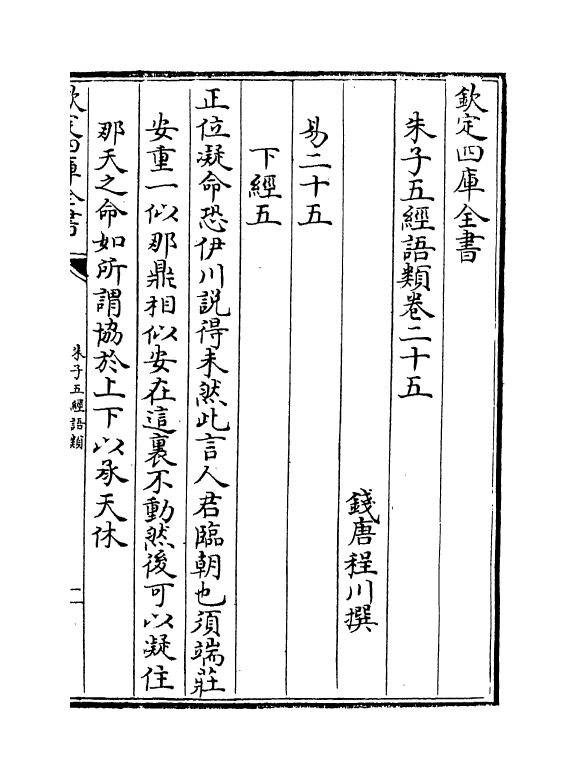 欽定四庫全書
朱子五經語類卷二十五
錢唐程川撰
易二十五
下經五
正位凝命恐伊川説得未然此言人君臨朝也須端莊
安重一似那鼎相似安在這裏不動然後可以凝住
那天之命如所謂協於上下以承天休
欽定四庫全書
朱子五經語類